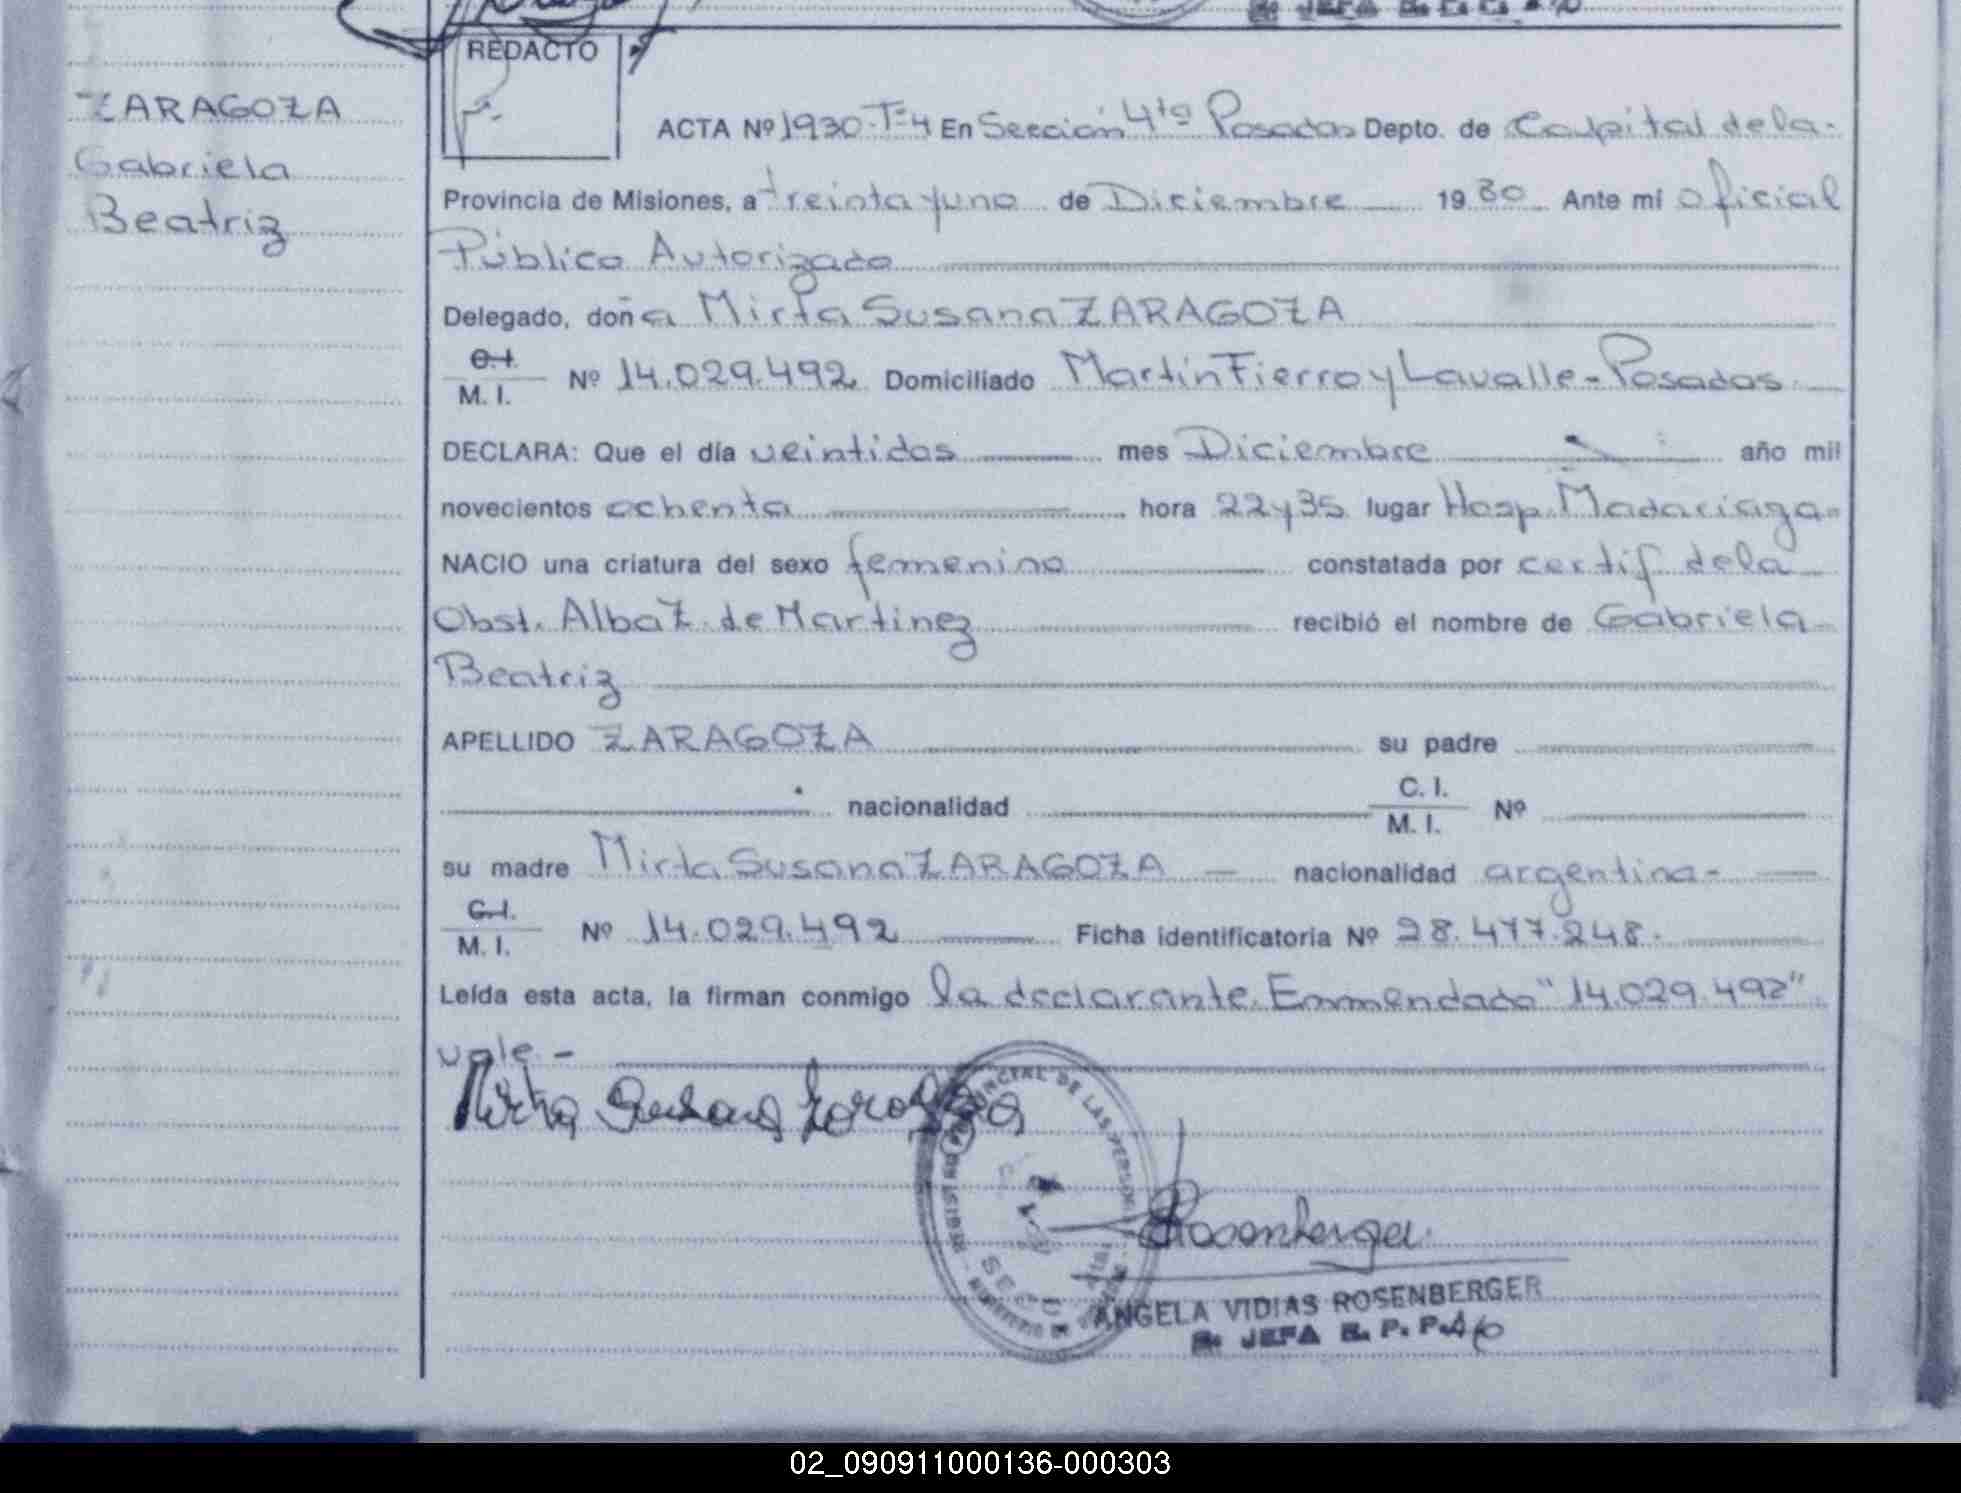 JEFA
REDACTO
ZARAGOZA
Gabriela
Beatriz
ACTA Nº 1930-Tº4 En Sección 4ta Posadas Depto. de Capital de la-
Provincia de Misiones, a treinta y uno de Diciembre 1980 Ante mi oficial
Público Autorizado
Delegado, doña Mirta Susana ZARAGOZA
C.I.
M. I. Nº 14.029.492 Domiciliado Martín Fierro y Lavalle - Posadas
DECLARA: Que el día veintidos mes Diciembre año mil
novecientos ochenta hora 22 y 35 lugar Hosp. Madariaga-
NACIO una criatura del sexo femenino constatada por certif de la
Obst. Alba Z. de Martinez recibió el nombre de Gabriela
Beatriz
APELLIDO ZARAGOZA su padre
nacionalidad C. I.
M. I. Nº
su madre Mirta Susana ZARAGOZA nacionalidad argentina-
C.I.
M. I. Nº 14.029.492 Ficha identificatoria Nº 28.477.248.
Leída esta acta, la firman conmigo la declarante. Emmendado "14.029.492"
vale.-
Mirta Susana Zaragoza
PROVINCIAL DE LAS PERSONAS
Rosenberger
ANGELA VIDIAS ROSENBERGER
JEFA R. P. P. A/c
02_090911000136-000303